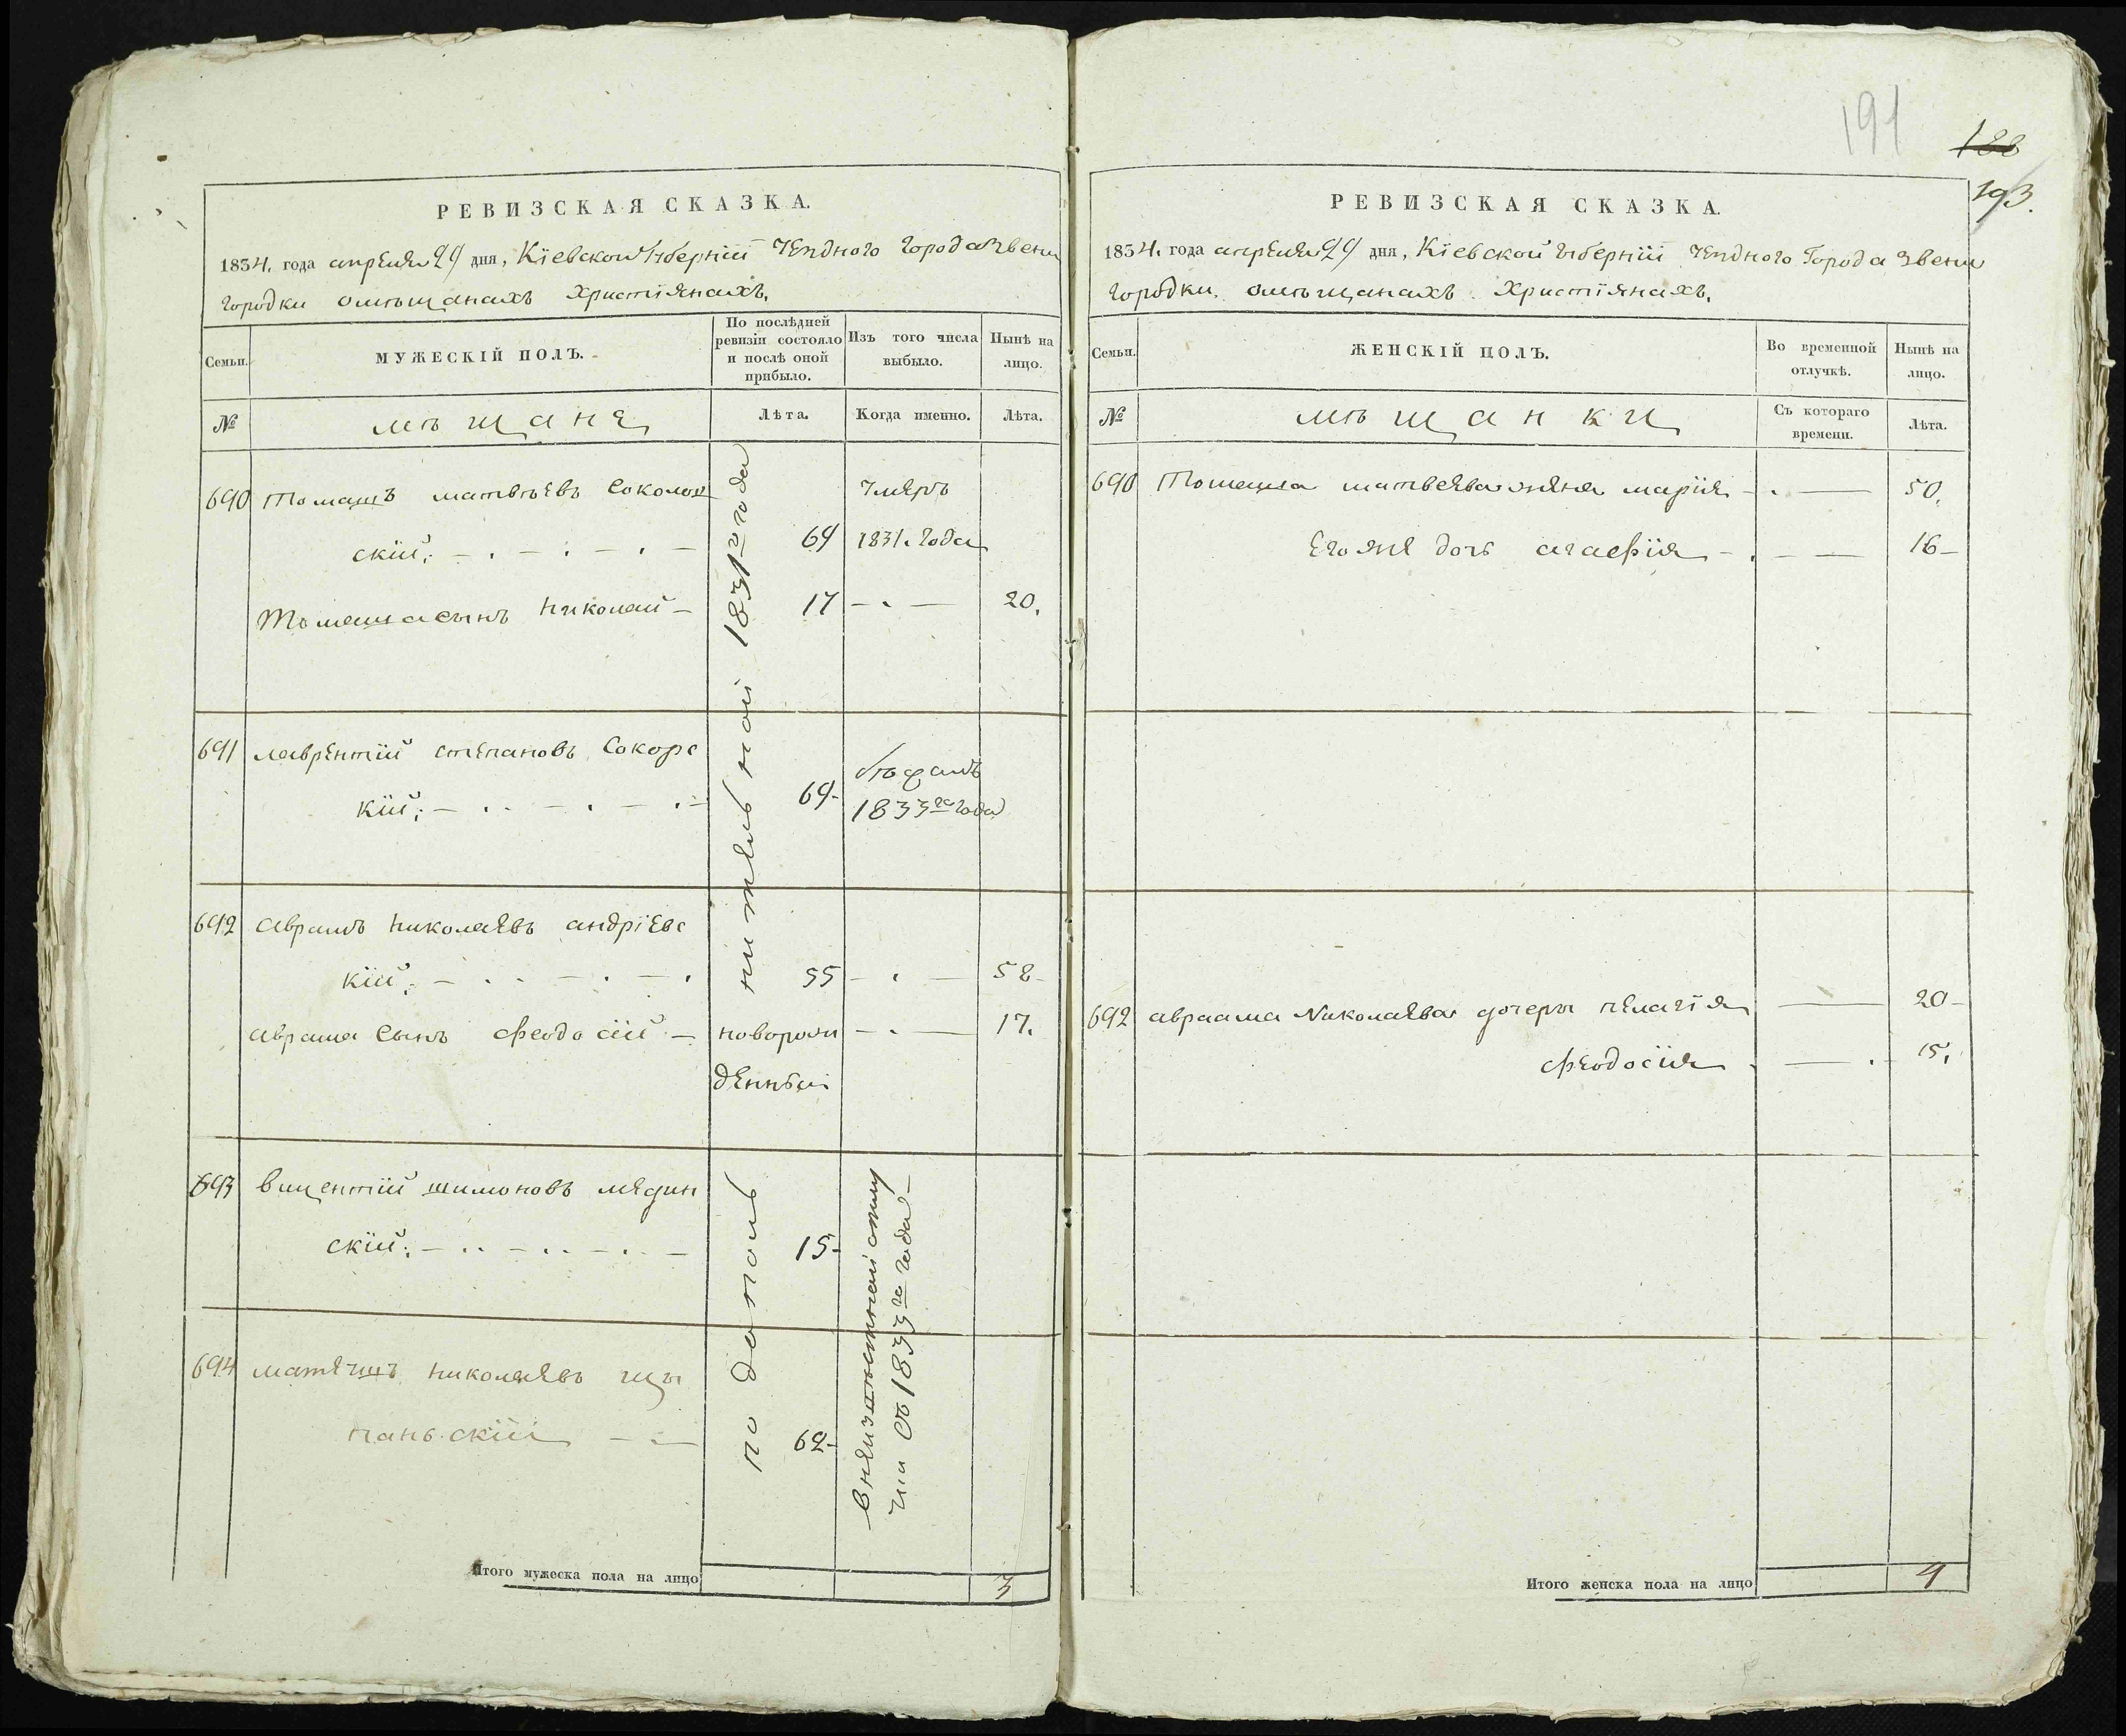 191
188
193.
РЕВИЗСКАЯ СКАЗКА.
1834. года апреля 24 дня, Кіевской губерніи уездного города Звени
городки омѣщанахъ христіянахъ.
Семьи.
МУЖЕСКІЙ ПОЛЪ.
По послѣдней
ревизіи состояло
и послѣ оной
прибыло.
Изъ того числа
выбыло.
Нынѣ на
лицо.
№
мѣщане
Лѣта.
Когда именно.
Лѣта.
690 Томашъ матвѣевъ Соколов
ский; 64
умеръ
1831. года
Томаша сынъ Николай 17 20.
691 лаврентий степановъ Сокорс
кий; 64
1833го года
692 аврамъ николаевъ андріевс
кий; 55 58
аврама сынъ Феодосий новорож 17.
денный
693 вицентий шимоновъ медин
ский; 15
694 николаевъ щы
паньский 62
по дополнительной 1831го года
в неизвестной отлу
чки съ 1833го года
Итого мужеска пола на лицо 3
РЕВИЗСКАЯ СКАЗКА.
1834. года апреля 24 дня, Кіевской губерніи уездного Города Звени
городки. омѣщанахъ христіянахъ.
Семьи.
ЖЕНСКІЙ ПОЛЪ.
Во временной
отлучкѣ.
Нынѣ на
лицо.
№
мѣщанки
Съ котораго
времени.
Лѣта.
690 Томаша матвеева жена мария 50.
его же дочь агафия 16
692 авраама Николаева дочери пелагія 20
феодосия 15.
Итого женска пола на лицо 4